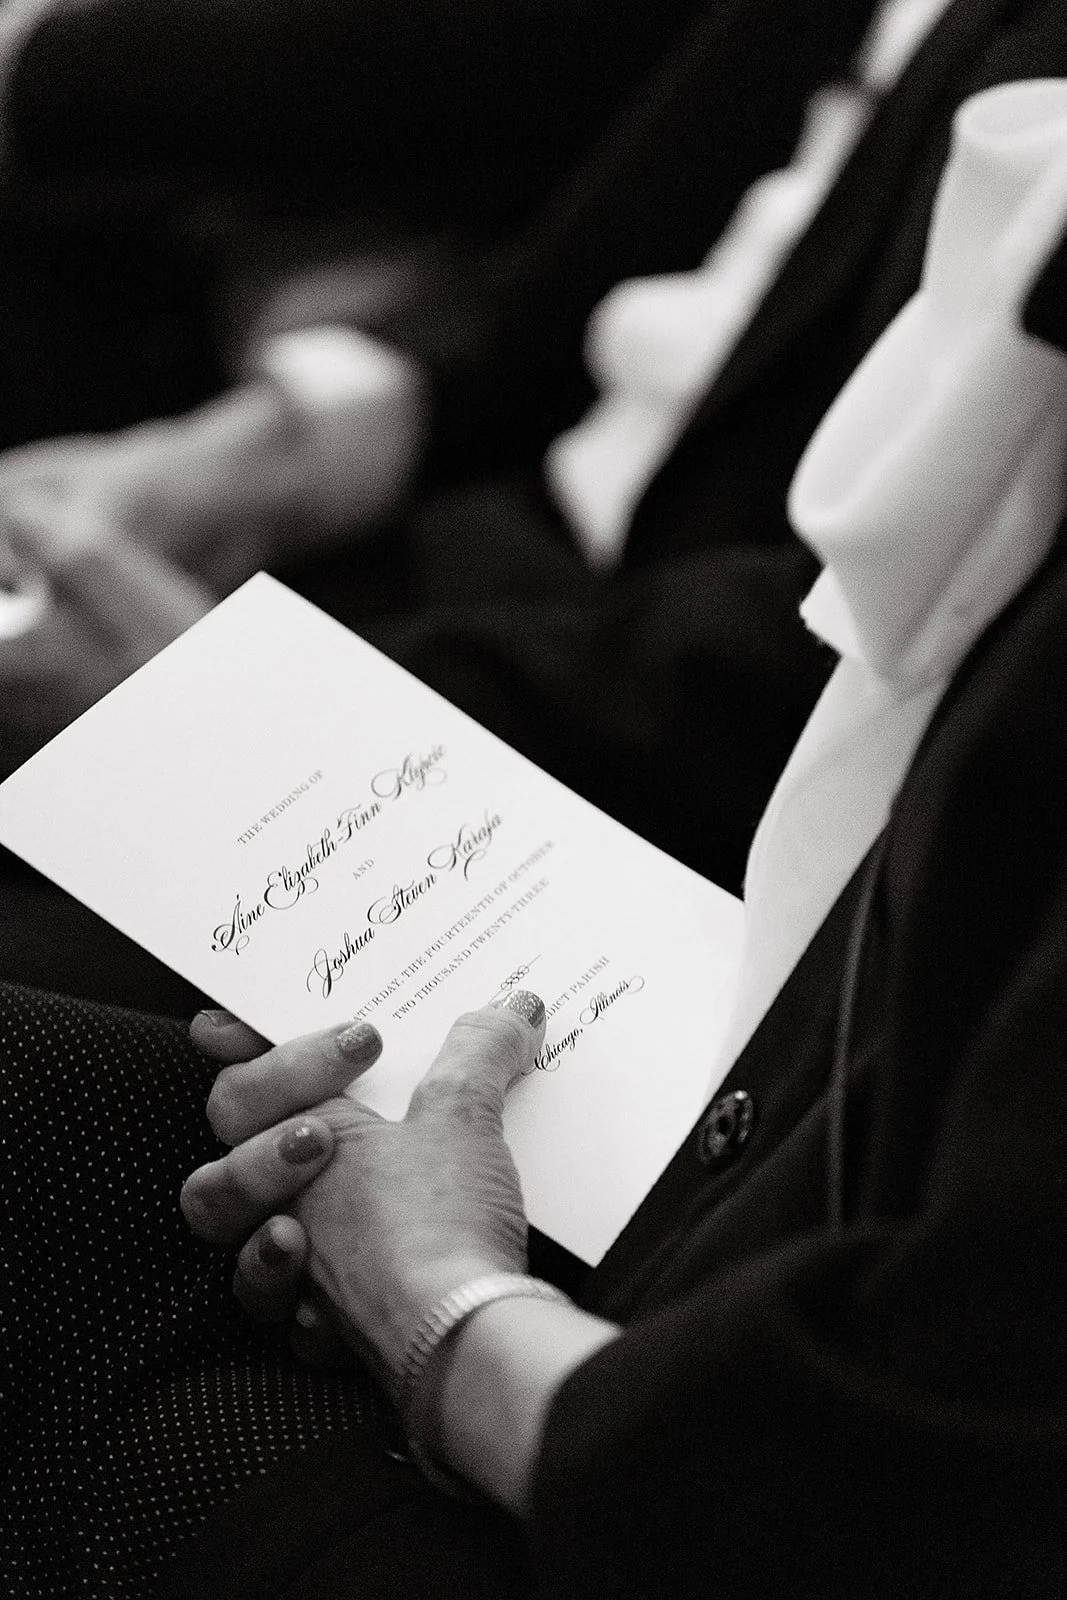 THE WEDDING OF
Áine Elizabeth-Finn
AND
Joshua Steven Karafa
ATURDAY, THE FOURTEENTH OF OCTOBER
TWO THOUSAND TWENTY-THREE
DICT PARISH
Chicago, Illinois